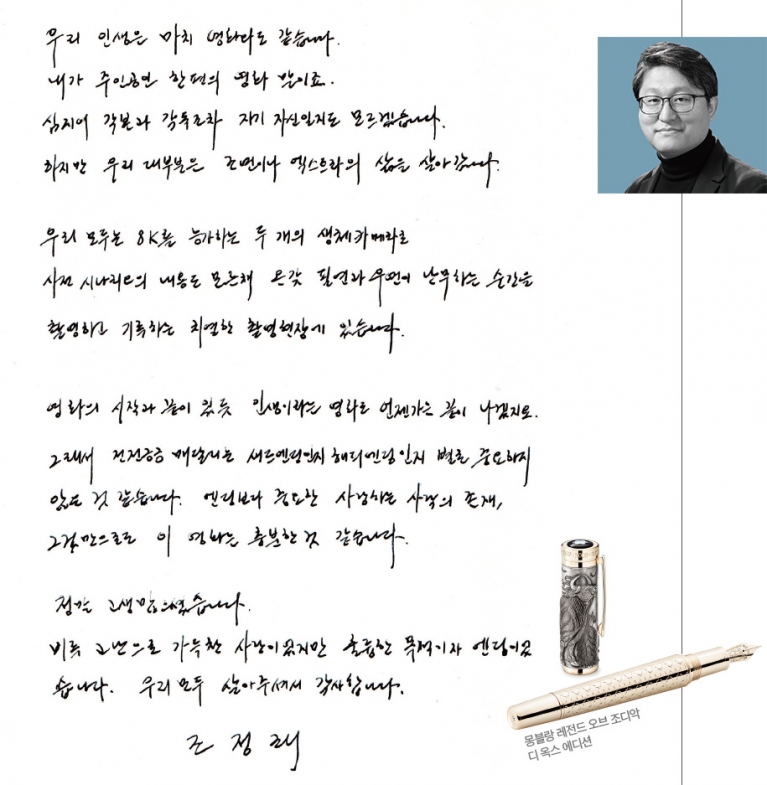 우리 인생은 마치 영화와도 같습니다.
내가 주인공인 한 편의 영화 말이죠.
심지어 각본과 감독조차 자기 자신인지도 모르겠습니다.
하지만 우리 대부분은 조연이나 엑스트라의 삶을 살아갑니다.
우리 모두는 8K를 능가하는 두 개의 생체카메라로
사전 시나리오의 내용도 모른채 온갖 필연과 우연이 난무하는 순간을
촬영하고 기록하는 치열한 촬영현장에 있습니다.
영화의 시작과 끝이 있듯 인생이라는 영화도 언젠가는 끝이 나겠지요.
그래서 전전긍긍 매달리는 새드엔딩인지 해피엔딩인지 별로 중요하지
않은 것 같습니다. 엔딩보다 중요한 사랑하는 사람의 존재,
그것만으로도 이 영화는 충분한 것 같습니다.
정말 고생많으셨습니다.
비록 고난으로 가득찬 사랑이었지만 훌륭한 목적이자 엔딩이었
습니다. 우리 모두 살아주셔서 감사합니다.
조정래
몽블랑 레전드 오브 조디악
디 옥스 에디션